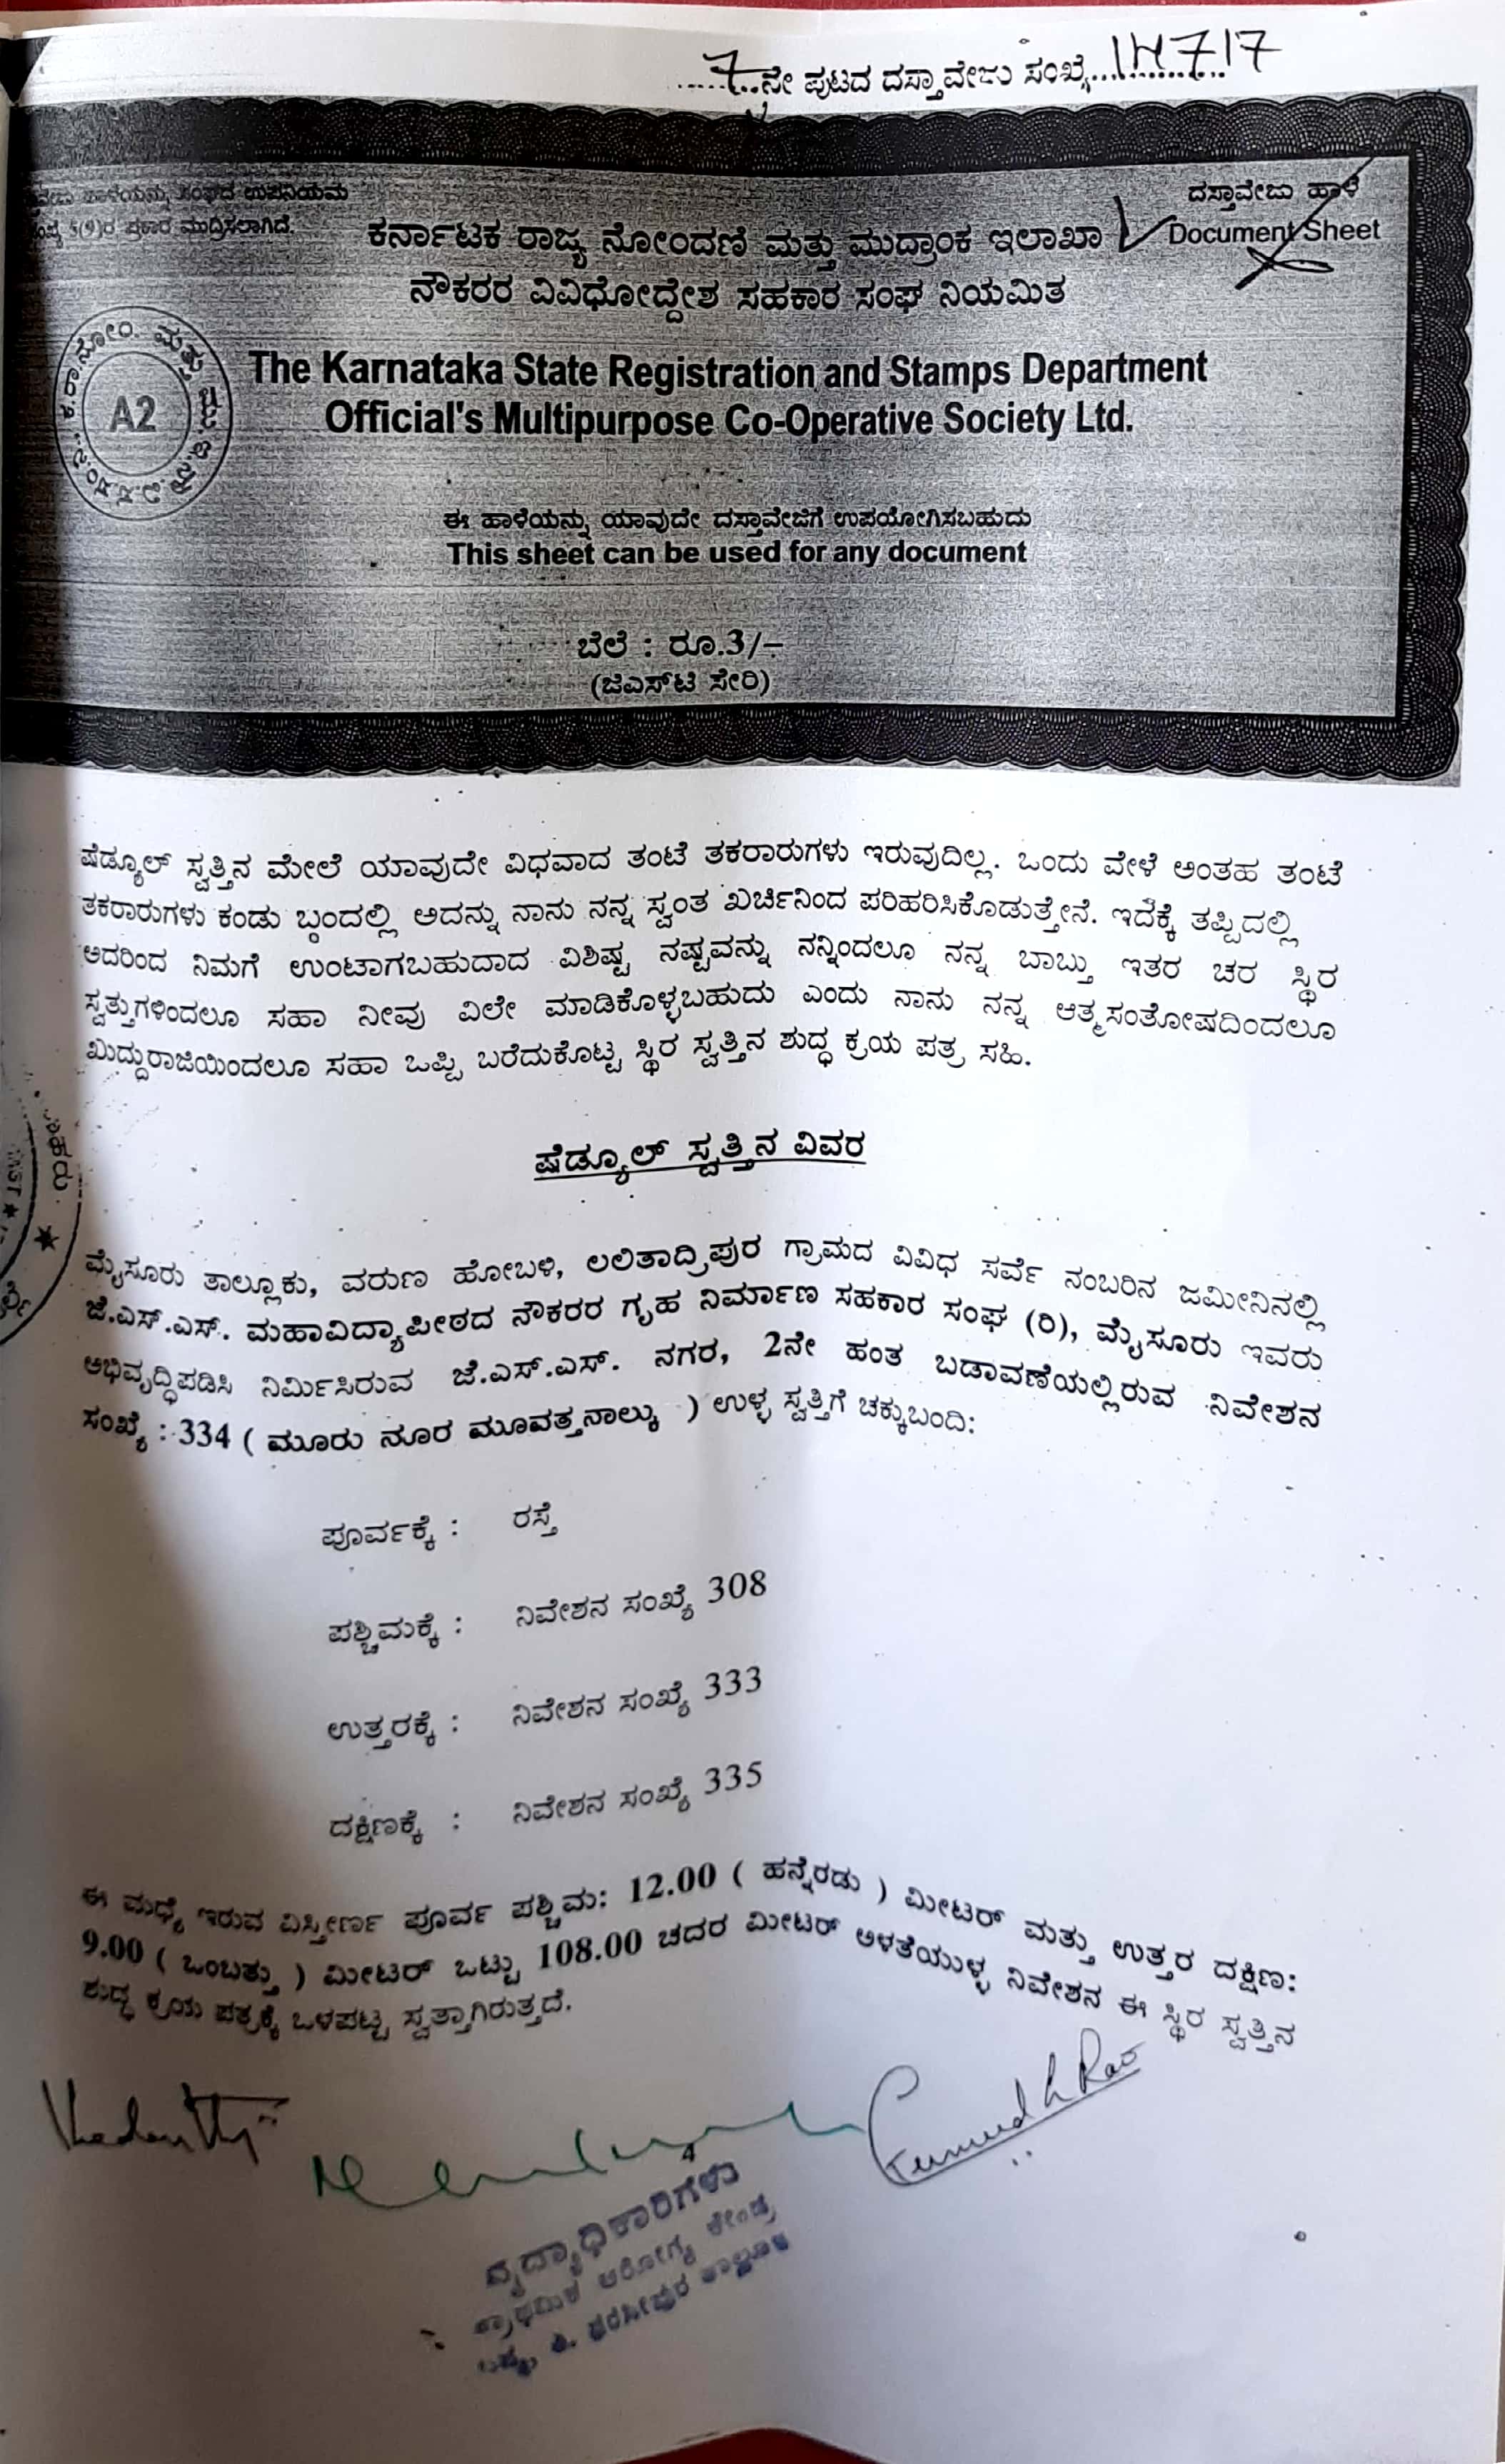 7ನೇ ಪುಟದ ದಸ್ತಾವೇಜು ಸಂಖ್ಯೆ
ಹಾಳೆಯನ್ನು ಸಂಘದ ಉಪನಿಯಮ
5(9)ರ ಪ್ರಕಾರ ಮುದ್ರಿಸಲಾಗಿದೆ.
ದಸ್ತಾವೇಜು ಹಾಳೆ
Document Sheet
ಕರ್ನಾಟಕ ರಾಜ್ಯ ನೋಂದಣಿ ಮತ್ತು ಮುದ್ರಾಂಕ ಇಲಾಖಾ
ನೌಕರರ ವಿವಿಧೋದ್ದೇಶ ಸಹಕಾರ ಸಂಘ ನಿಯಮಿತ
The Karnataka State Registration and Stamps Department
Official's Multipurpose Co-Operative Society Ltd.
A2
ಈ ಹಾಳೆಯನ್ನು ಯಾವುದೇ ದಸ್ತಾವೇಜಿಗೆ ಉಪಯೋಗಿಸಬಹುದು
This sheet can be used for any document
ಬೆಲೆ : ರೂ.3/-
(ಜಿಎಸ್‌ಟಿ ಸೇರಿ)
ಷೆಡ್ಯೂಲ್ ಸ್ವತ್ತಿನ ಮೇಲೆ ಯಾವುದೇ ವಿಧವಾದ ತಂಟೆ ತಕರಾರುಗಳು ಇರುವುದಿಲ್ಲ. ಒಂದು ವೇಳೆ ಅಂತಹ ತಂಟೆ
ತಕರಾರುಗಳು ಕಂಡು ಬ್ಂದಲ್ಲಿ ಅದನ್ನು ನಾನು ನನ್ನ ಸ್ವಂತ ಖರ್ಚಿನಿಂದ ಪರಿಹರಿಸಿಕೊಡುತ್ತೇನೆ. ಇದಕ್ಕೆ ತಪ್ಪಿದಲ್ಲಿ
ಅದರಿಂದ ನಿಮಗೆ ಉಂಟಾಗಬಹುದಾದ ವಿಶಿಷ್ಟ ನಷ್ಟವನ್ನು ನನ್ನಿಂದಲೂ ನನ್ನ ಬಾಬ್ತು ಇತರ ಚರ ಸ್ಥಿರ
ಸ್ವತ್ತುಗಳಿಂದಲೂ ಸಹಾ ನೀವು ವಿಲೇ ಮಾಡಿಕೊಳ್ಳಬಹುದು ಎಂದು ನಾನು ನನ್ನ ಆತ್ಮಸಂತೋಷದಿಂದಲೂ
ಖುದ್ದುರಾಜಿಯಿಂದಲೂ ಸಹಾ ಒಪ್ಪಿ ಬರೆದುಕೊಟ್ಟ ಸ್ಥಿರ ಸ್ವತ್ತಿನ ಶುದ್ಧ ಕ್ರಯ ಪತ್ರ ಸಹಿ.
ಷೆಡ್ಯೂಲ್ ಸ್ವತ್ತಿನ ವಿವರ
ಮೈಸೂರು ತಾಲ್ಲೂಕು, ವರುಣ ಹೋಬಳಿ, ಲಲಿತಾದ್ರಿಪುರ ಗ್ರಾಮದ ವಿವಿಧ ಸರ್ವೆ ನಂಬರಿನ ಜಮೀನಿನಲ್ಲಿ
ಜೆ.ಎಸ್.ಎಸ್. ಮಹಾವಿದ್ಯಾಪೀಠದ ನೌಕರರ ಗೃಹ ನಿರ್ಮಾಣ ಸಹಕಾರ ಸಂಘ (ರಿ), ಮೈಸೂರು ಇವರು
ಅಭಿವೃದ್ಧಿಪಡಿಸಿ ನಿರ್ಮಿಸಿರುವ ಜೆ.ಎಸ್.ಎಸ್. ನಗರ, 2ನೇ ಹಂತ ಬಡಾವಣೆಯಲ್ಲಿರುವ ನಿವೇಶನ
ಸಂಖ್ಯೆ : 334 ( ಮೂರು ನೂರ ಮೂವತ್ತನಾಲ್ಕು ) ಉಳ್ಳ ಸ್ವತ್ತಿಗೆ ಚಕ್ಕುಬಂದಿ:
ಪೂರ್ವಕ್ಕೆ : ರಸ್ತೆ
ಪಶ್ಚಿಮಕ್ಕೆ : ನಿವೇಶನ ಸಂಖ್ಯೆ 308
ಉತ್ತರಕ್ಕೆ : ನಿವೇಶನ ಸಂಖ್ಯೆ 333
ದಕ್ಷಿಣಕ್ಕೆ : ನಿವೇಶನ ಸಂಖ್ಯೆ 335
ಈ ಮಧ್ಯೆ ಇರುವ ವಿಸ್ತೀರ್ಣ ಪೂರ್ವ ಪಶ್ಚಿಮ: 12.00 ( ಹನ್ನೆರಡು ) ಮೀಟರ್ ಮತ್ತು ಉತ್ತರ ದಕ್ಷಿಣ:
9.00 ( ಒಂಬತ್ತು ) ಮೀಟರ್ ಒಟ್ಟು 108.00 ಚದರ ಮೀಟರ್ ಅಳತೆಯುಳ್ಳ ನಿವೇಶನ ಈ ಸ್ಥಿರ ಸ್ವತ್ತಿನ
ಶುದ್ಧ ಕ್ರಯ ಪತ್ರಕ್ಕೆ ಒಳಪಟ್ಟ ಸ್ವತ್ತಾಗಿರುತ್ತದೆ.
4
ವೈದ್ಯಾಧಿಕಾರಿಗಳು
ಪ್ರಾಥಮಿಕ ಆರೋಗ್ಯ ಕೇಂದ್ರ
ತಿ. ನರಸೀಪುರ ತಾಲ್ಲೂಕು